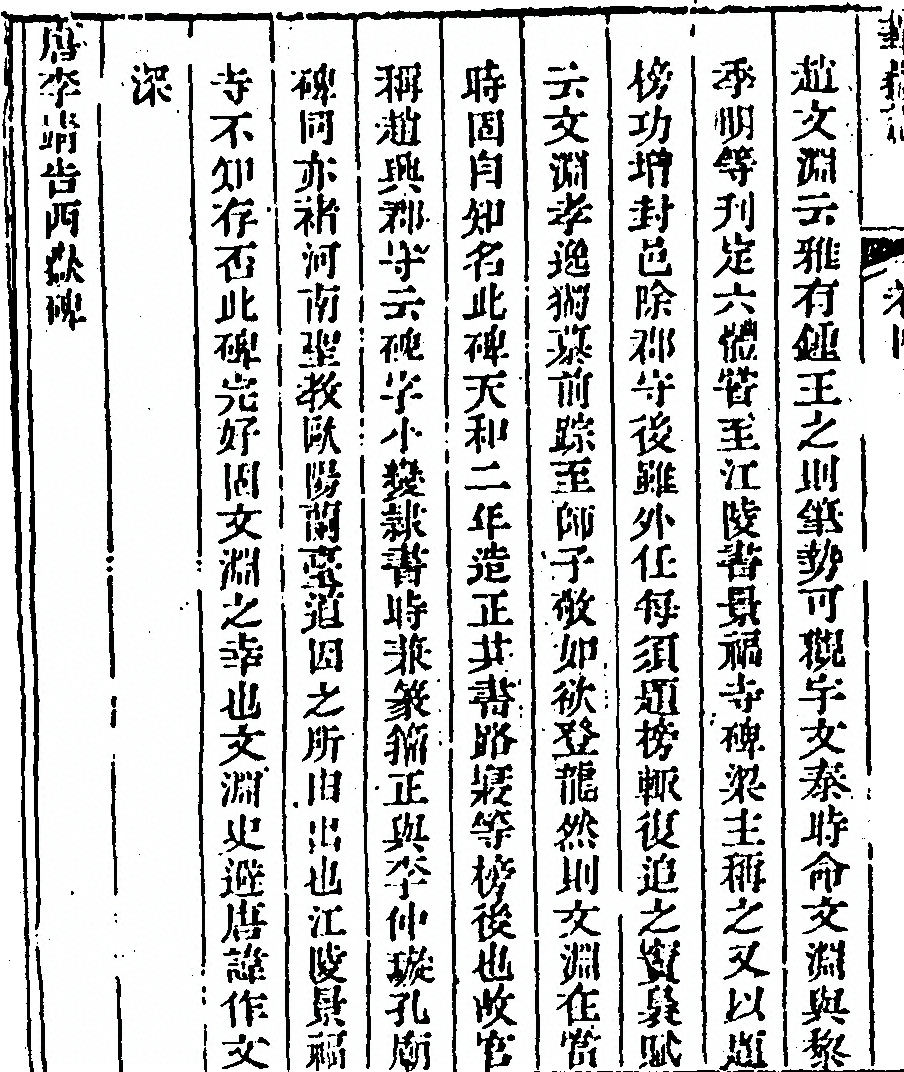 趙文淵云雅有鍾王之則筆勢可觀宇文泰時命文淵與黎
季明等刊定六體嘗至江陵書景福寺碑梁主稱之又以題
榜功增封邑除郡守後雖外任每須題榜輒復追之竇臮賦
云文淵孝逸獨慕前踪至師子敬如欲登龍然則文淵在當
時固自知名此碑天和二年造正其書路寢等榜後也故官
稱趙興郡守云碑字小變隸書時兼篆籀正與李仲璇孔廟
碑同亦褚河南聖教歐陽蘭臺道因之所由出也江陵景福
寺不知存否此碑完好固文淵之幸也文淵史避唐諱作文
深
唐李靖告西嶽碑